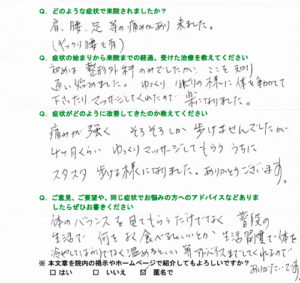 Q. どのような症状で来院されましたか？
肩、腰、足 等の痛みがあり 来ました。
（ぎっくり腰も有）
Q. 症状の始まりから来院までの経過、受けた治療を教えてください
初めは 整形外科 のみでしたが、ここを知り
通い始めました。ゆっくり ほぐの様に 体を動かして
下さったり マッサージしてくれたので 楽になりました。
Q. 症状がどのように改善してきたのか教えてください
痛みが強く、そろそろしか歩けませんでしたが
4ヶ月くらい ゆっくりマッサージしてもらううちに
スタスタ 歩ける様になりました。ありがとうございます。
Q. ご意見、ご要望や、同じ症状でお悩みの方へのアドバイスなどありましたらぜひお書きください
体のバランスを見てもらうだけでなく 普段の
生活で 何をよく食べるといいとか 生活習慣で体を
冷やしてはいけなく温めるといい等アドバイスまでしてくれるので
ありがたいです。
※本文章を院内の掲示やホームページで紹介してもよろしいですか？
□ はい □ いいえ ☑ 匿名で